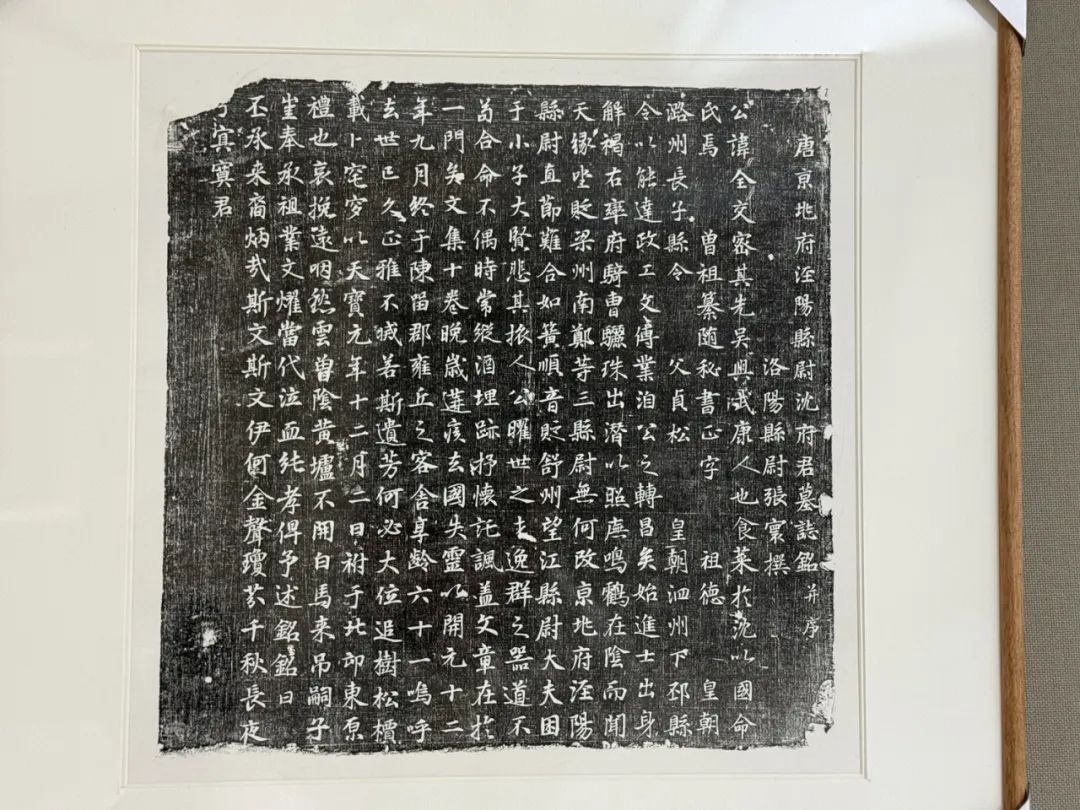 唐京兆府涇陽縣尉沈府君墓誌銘并序
洛陽縣尉張寰撰
公諱全交密其先吳興武康人也食菜於沈以國命
氏焉 曾祖纂隨秘書正字 祖德 皇朝
潞州長子縣令 父貞松 皇朝泗州下邳縣
令以能達政工文傳業洎公之轉昌矣始進士出身
解褐右率府騎曹驪珠出潛以照廡鳴鶴在陰而聞
天緣坐貶梁州南鄭等三縣尉無何改京兆府涇陽
縣尉直節難合如簧順音貶舒州望江縣尉大夫困
于小子大賢悲其旅人公曜世之才逸群之器道不
苟合命不偶時常縱酒埋跡抒懷託諷蓋文章在於
一門矣文集十卷晚歲遘疾去國失靈以開元十二
年九月終于陳留郡雍丘之客舍享齡六十一嗚呼
去世已久正雅不滅若斯遺芳何必大位追樹松檟
載卜窀穸以天寶元年十二月二日祔于北邙東原
禮也哀挽遠咽愁雲曾陰黃壚不開白馬来吊嗣子
坒奉承祖業文燿當代泣血純孝俾予述銘銘曰
丕承来裔炳哉斯文斯文伊何金聲瓊芬千秋長夜
寘寞君